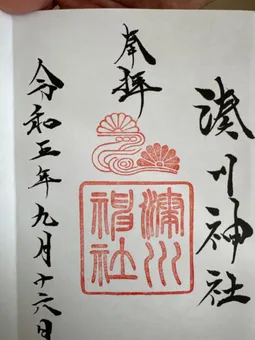 奉拝
湊川神社
湊川神社
令和五年九月十六日